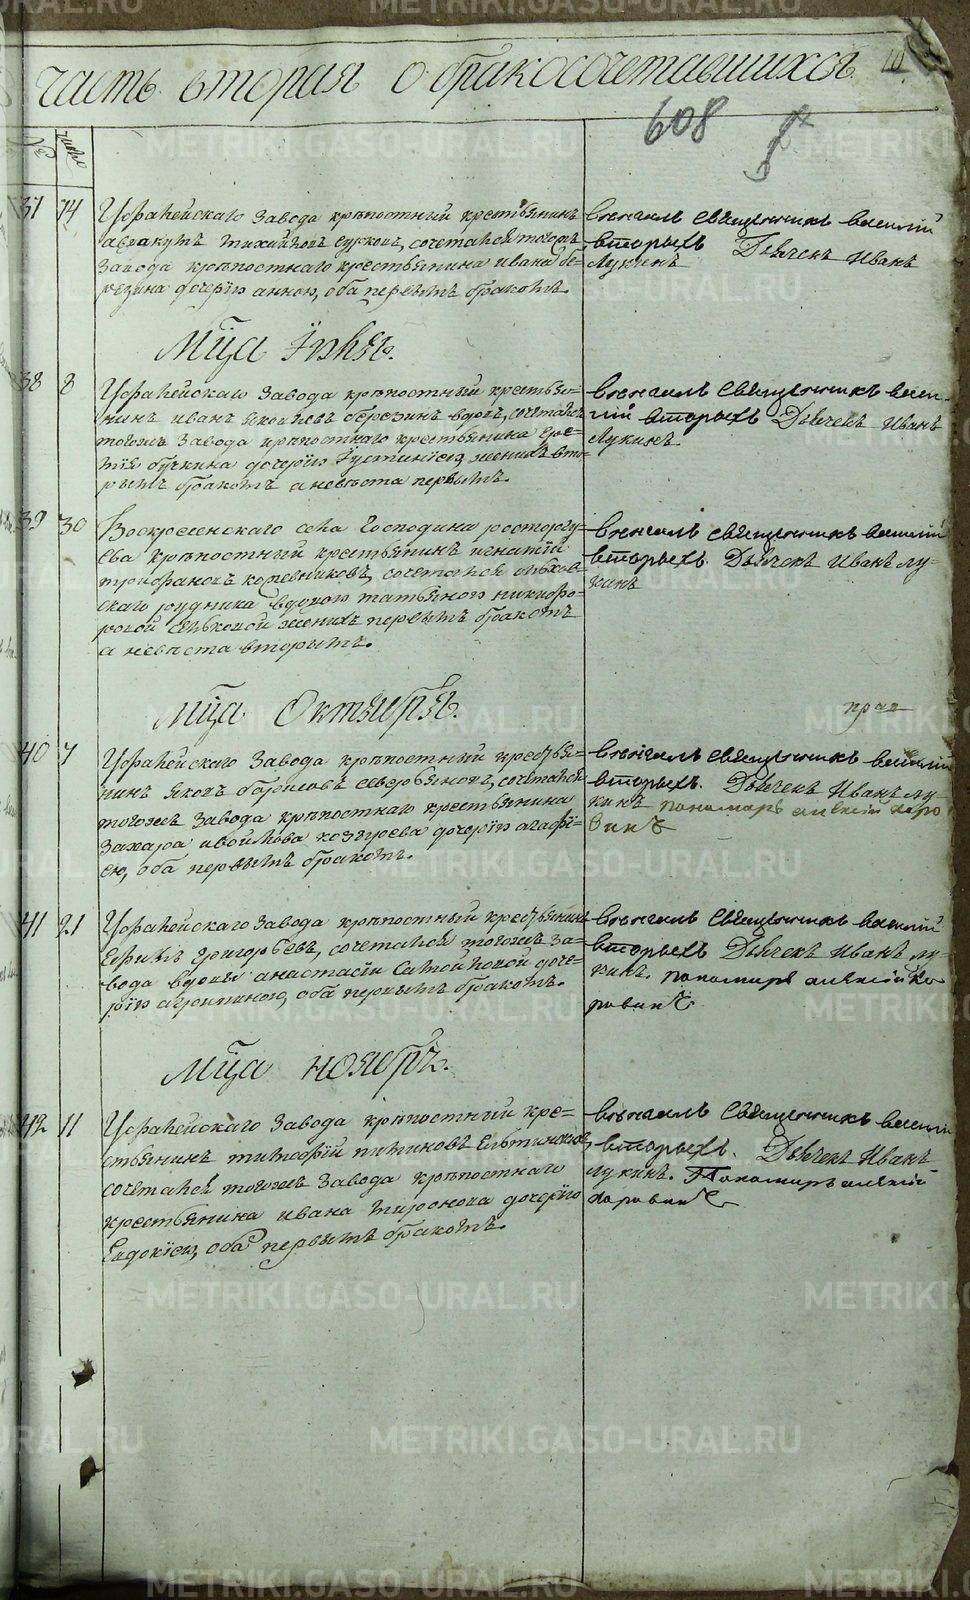 часть вторая о бракосочетавшихся
10
608
№
число
37 14 Уфалейскаго завода крѣпостный крестьянинъ
сочетался тогожъ
завода крѣпостнаго крестьянина ивана бе-
резина дочерїю анною, оба первымъ бракомъ.
вѣнчалъ священникъ василїй
вторыхъ Дьячекъ Иванъ
Лукинъ
Мца Iюля.
38 8 Уфалейскаго завода крѣпостный крестья-
нинъ иванъ яковлевъ березинъ вдовъ, сочетался
тогожъ завода крѣпостнаго крестьянина
бучкина дочерїю Iустинїею, женихъ вто-
рымъ бракомъ а невѣста первымъ.
вѣнчалъ священникъ васи-
лїй вторыхъ Дьячекъ Иванъ
Лукинъ
39 30 Воскресенскаго села Господина росторгу-
ева крѣпостный крестьянинъ игнатїй
трифановъ кожевниковъ, сочетался
скаго рудника вдовою татьяною никифо-
ровой женихъ первымъ бракомъ
а невѣста вторымъ.
вѣнчалъ священникъ василїй
вторыхъ. Дьячекъ Иванъ лу-
кинъ
Мца Октября.
40 7 Уфалейскаго завода крѣпостный крестья-
нинъ яковъ борисовъ сочетался
тогожъ завода крѣпостнаго крестьянина
захара козырева дочерїю агафї-
ею, оба первымъ бракомъ.
вѣнчалъ священникъ василїй
вторыхъ. Дьячекъ Иванъ лу-
кинъ пономарь алексїй каро
винъ
41 21 Уфалейскаго завода крѣпостный крестьянинъ
Ефимъ григорьевъ, сочетался тогожъ за-
вода вдовы анастасїи доче-
рїю агрипиною, оба первымъ бракомъ.
вѣнчалъ священникъ василїй
вторыхъ Дьячекъ Иванъ лу-
кинъ. пономарь алексїй ка
ровинъ
Мца ноября.
42 11 Уфалейскаго завода крѣпостный кре-
стьянинъ тимофїй
сочетался тогожъ завода крѣпостнаго
крестьянина ивана миронова дочерїю
Евдокїею, оба первымъ бракомъ.
вѣнчалъ священникъ василїй
вторыхъ. Дьячекъ Иванъ
лукинъ. Пономарь алексїй
каровинъ
METRIKI.GASO-URAL.RU